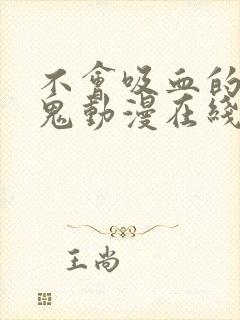 不會吸血的
鬼動漫在綫
王尚